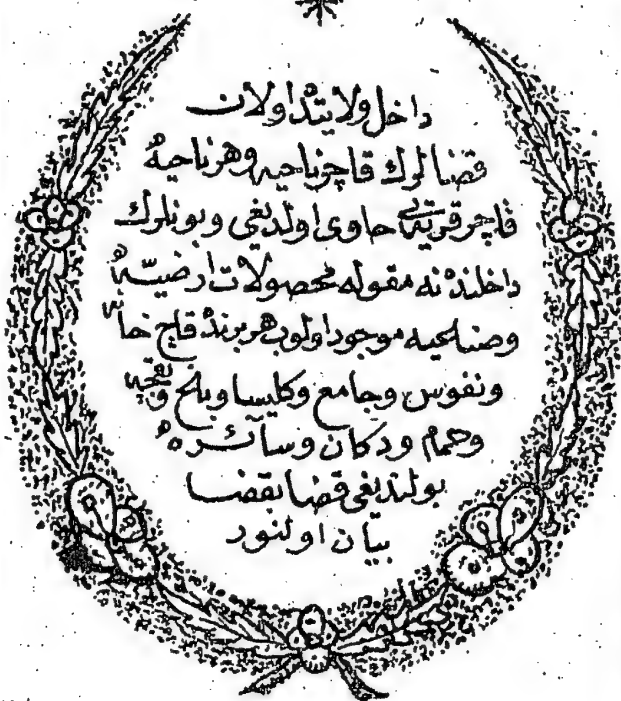 داخل ولایتده اولان
قضالرك قاچر ناحیه و هر ناحیه
قاچر قریه‌یی حاوی اولدیغی و بونلرك
داخلنده نه مقوله محصولات ارضیه
و صناعیه موجود اولوب هر برنده قاچ خانه
و نفوس و جامع و کلیسا و باغ و بقچه
و حمام و دکان و سائره
بولندیغی قضا بقضا
بیان اولنور